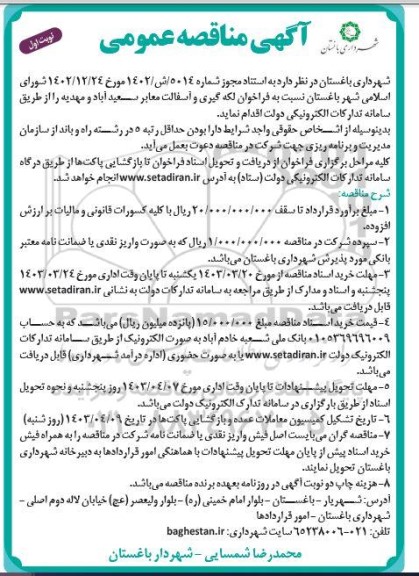 نوبت اول
آگهی مناقصه عمومی
شهرداری باغستان
شهرداری باغستان در نظر دارد به استناد مجوز شماره ۵۰۱۴/ش/۱۴۰۲ مورخ ۱۴۰۲/۱۲/۲۴ شورای
اسلامی شهر باغستان نسبت به فراخوان لکه گیری و آسفالت معابر سعید آباد و مهدیه را از طریق
سامانه تدارکات الکترونیکی دولت اقدام نماید.
بدینوسیله از اشخاص حقوقی واجد شرایط دارا بودن حداقل رتبه ۵ در رشته راه و باند از سازمان
مدیریت و برنامه ریزی جهت شرکت در مناقصه دعوت بعمل می‌آید.
کلیه مراحل برگزاری فراخوان از دریافت و تحویل اسناد فراخوان تا بازگشایی پاکت‌ها از طریق درگاه
سامانه تدارکات الکترونیکی دولت (ستاد) به آدرس www.setadiran.ir انجام خواهد شد.
شرح مناقصه:
۱- مبلغ برآورد قرارداد تا سقف ۲۰/۰۰۰/۰۰۰/۰۰۰ ریال با کلیه کسورات قانونی و مالیات بر ارزش
افزوده.
۲- سپرده شرکت در مناقصه ۱/۰۰۰/۰۰۰/۰۰۰ ریال که به صورت واریز نقدی یا ضمانت نامه معتبر
بانکی مورد پذیرش شهرداری باغستان می‌باشد.
۳- مهلت خرید اسناد مناقصه از مورخ ۱۴۰۳/۰۳/۲۰ یکشنبه تا پایان وقت اداری مورخ ۱۴۰۳/۰۳/۲۴
پنجشنبه و اسناد و مدارک از طریق مراجعه به سامانه تدارکات دولت به نشانی www.setadiran.ir
قابل دریافت می‌باشد.
۴- قیمت خرید اسناد مناقصه مبلغ ۱۵/۰۰۰/۰۰۰ (پانزده میلیون ریال) می‌باشد که به حساب
۰۱۰۵۳۶۹۶۹۶۰۰۹ بانک ملی شعبه خادم آباد به صورت الکترونیک از طریق سامانه تدارکات
الکترونیک دولت www.setadiran.ir یا به صورت حضوری (اداره درآمد شهرداری) قابل دریافت
می‌باشد.
۵- مهلت تحویل پیشنهادات تا پایان وقت اداری مورخ ۱۴۰۳/۰۴/۰۷ روز پنجشنبه و نحوه تحویل
اسناد از طریق بارگزاری در سامانه تدارک الکترونیک دولت می‌باشد.
۶- تاریخ تشکیل کمیسیون معاملات عمده و بازگشایی پاکت‌ها در تاریخ ۱۴۰۳/۰۴/۰۹ (روز شنبه)
۷- مناقصه گران می‌بایست اصل فیش واریز نقدی یا ضمانت نامه شرکت در مناقصه را به همراه فیش
خرید اسناد پیش از پایان مهلت تحویل پیشنهادات با هماهنگی امور قراردادها به دبیرخانه شهرداری
باغستان تحویل نمایند.
۸- هزینه چاپ دو نوبت آگهی در روزنامه بعهده برنده مناقصه می‌باشد.
آدرس: شهریار - باغستان - بلوار امام خمینی (ره) - بلوار ولیعصر (عج) خیابان لاله دوم اصلی -
شهرداری باغستان - امور قراردادها
تلفن: ۰۲۱-۶۵۲۳۸۰۰۶ سایت شهرداری: baghestan.ir
محمدرضا شمسایی - شهردار باغستان